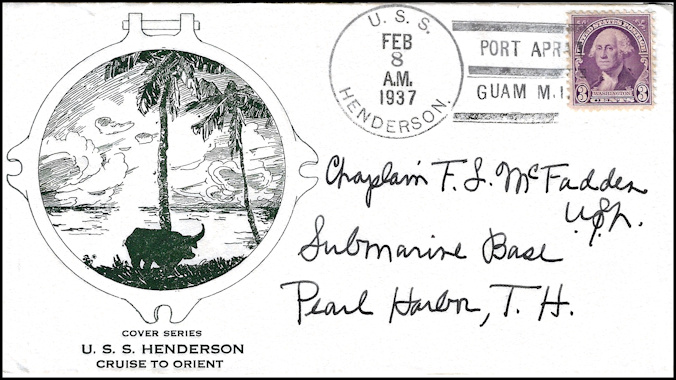 U. S. S.
FEB
8
A.M.
1937
HENDERSON.
PORT APRA
GUAM M.I.
UNITED STATES POSTAGE
3 WASHINGTON 3
CENTS
Chaplain F. L. McFadden
U.S.N.
Submarine Base
Pearl Harbor, T. H.
COVER SERIES
U. S. S. HENDERSON
CRUISE TO ORIENT